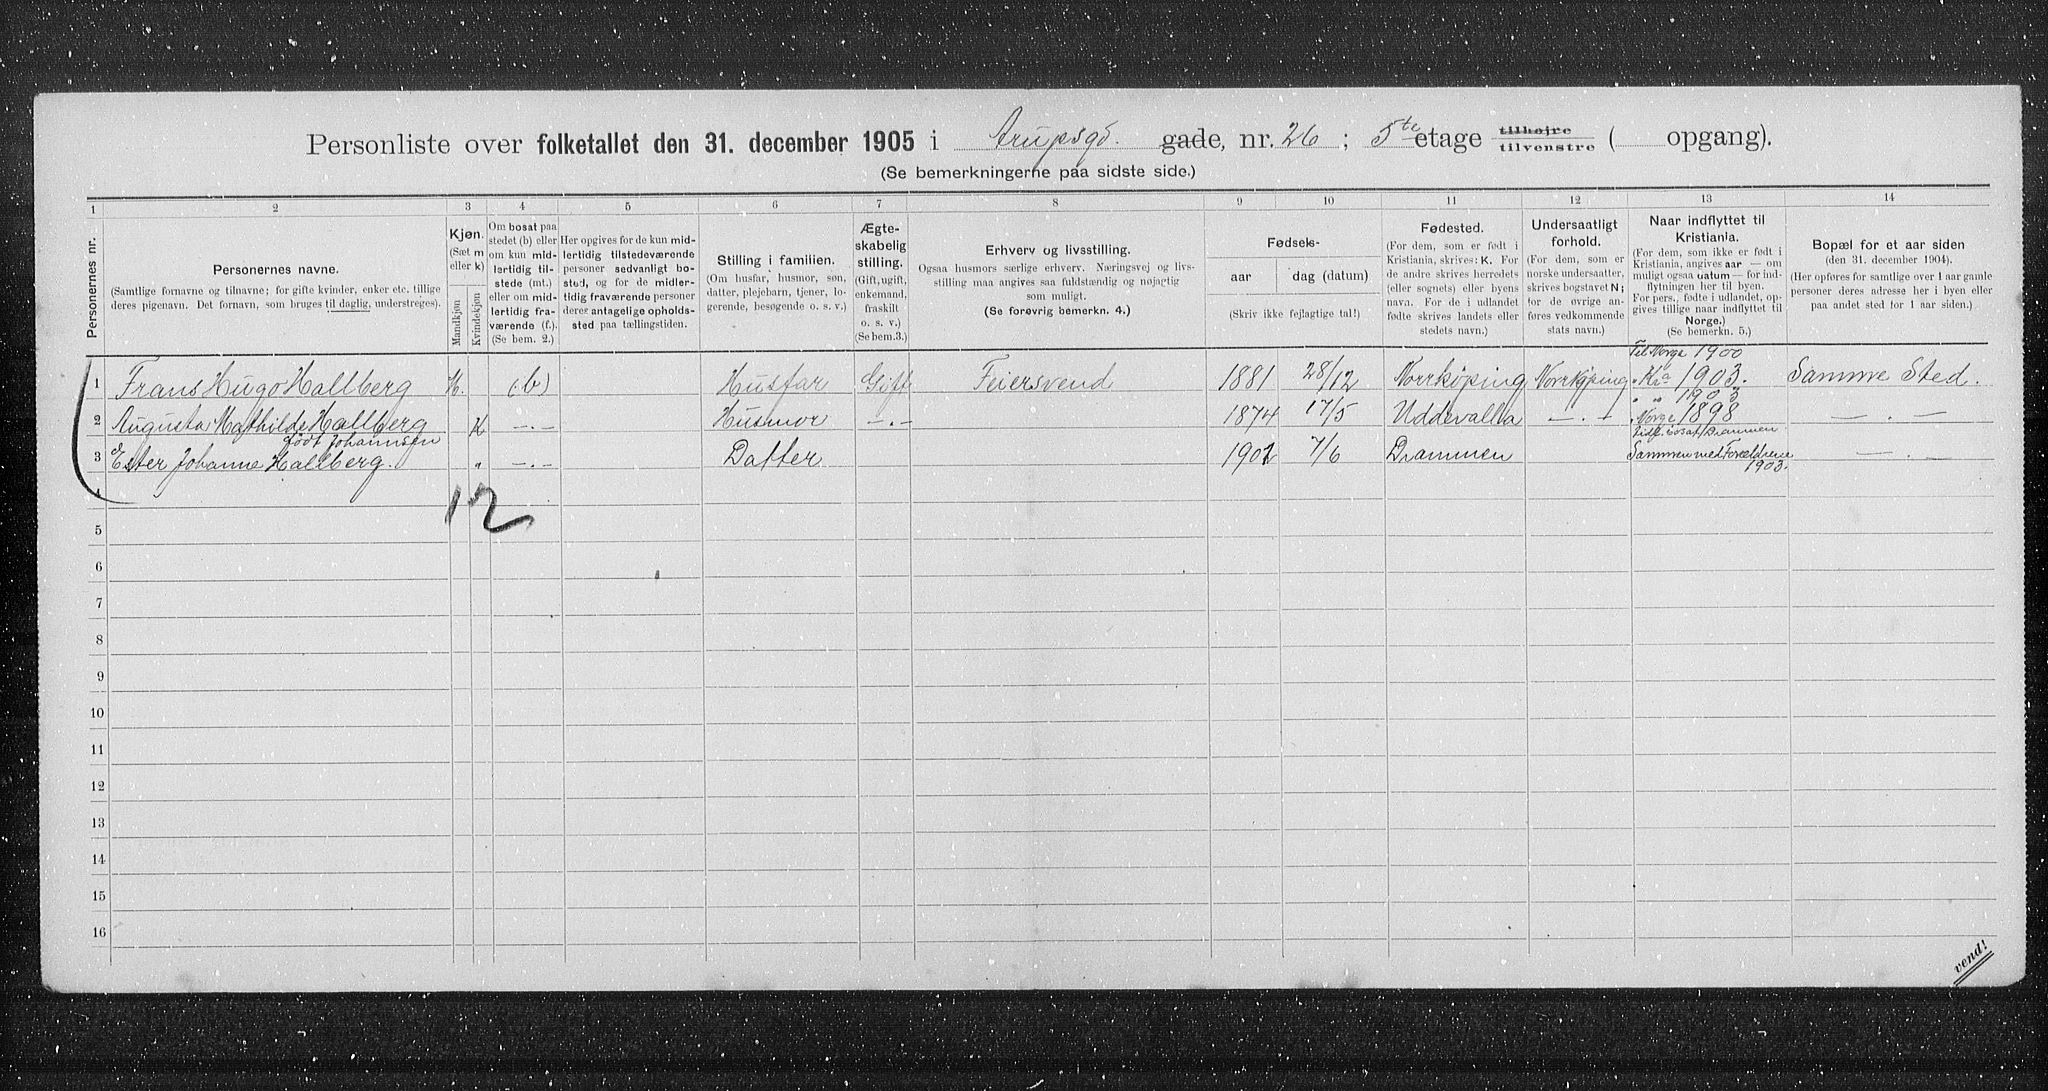 Personliste over folketallet den 31. december 1905 i Arupsgd. gade, nr. 26 ; 5te etage tilhøjre tilvenstre ( opgang).
(Se bemerkningerne paa sidste side.)
1 2 3 4 5 6 7 8 9 10 11 12 13 14
Personernes nr.
Personernes navne.
(Samtlige fornavne og tilnavne; for gifte kvinder, enker etc. tillige
deres pigenavn. Det fornavn, som bruges til daglig, understreges).
Kjøn.
(Sæt m
eller k)
Mandkjøn
Kvindekjøn
Om bosat paa
stedet (b) eller
om kun mid-
lertidig til-
stede (mt.)
eller om mid-
lertidig fra-
værende (f.).
(Se bem. 2.)
Her opgives for de kun mid-
lertidig tilstedeværende
personer sedvanligt bo-
sted, og for de midler-
tidig fraværende personer
deres antagelige opholds-
sted paa tællingstiden.
Stilling i familien.
(Om husfar, husmor, søn,
datter, plejebarn, tjener, lo-
gerende, besøgende o. s. v.)
Ægte-
skabelig
stilling.
(Gift, ugift,
enkemand,
fraskilt
o. s. v.)
(Se bem.3.)
Erhverv og livsstilling.
Ogsaa husmors særlige erhverv. Næringsvej og livs-
stilling maa angives saa fuldstændig og nøjagtig
som muligt.
(Se forøvrig bemerkn. 4.)
Fødsels-
aar dag (datum)
(Skriv ikke fejlagtige tal!)
Fødested.
(For dem, som er født i
Kristiania, skrives: K. For
de andre skrives herredets
(eller sognets) eller byens
navn. For de i udlandet
fødte skrives landets eller
stedets navn.)
Undersaatligt
forhold.
(For dem, som er
norske undersaatter,
skrives bogstavet N;
for de øvrige an-
føres vedkommende
stats navn.)
Naar indflyttet til
Kristiania.
(For dem, som ikke er født i
Kristiania, angives aar — om
muligt ogsaa datum — for ind-
flytningen her til byen.
For pers., fødte i udlandet, op-
gives tillige naar indflyttet til
Norge.)
(Se bemerkn. 5.)
Bopæl for et aar siden
(den 31. december 1904).
(Her opføres for samtlige over 1 aar gamle
personer deres adresse her i byen eller
paa andet sted for 1 aar siden.)
Til Norge 1900
1 Frans Hugo Hallberg M. (b) Husfar Gift Feiersvend 1881 28/12 Norrkøping Norrkøping " Kra 1903. Samme Sted.
" " 1903
2 Augusta Mathilde Hallberg K —.— Husmor —.— 1874 17/5 Uddevalla —.— " Norge 1898 —.—
født Johannsen bosat Drammen
3 Ester Johanne Hallberg. " —.— Datter 1902 7/6 Drammen Sammen med Forældrene —.—
1903.
4
12
5
6
7
8
9
10
11
12
13
14
15
16
vend!